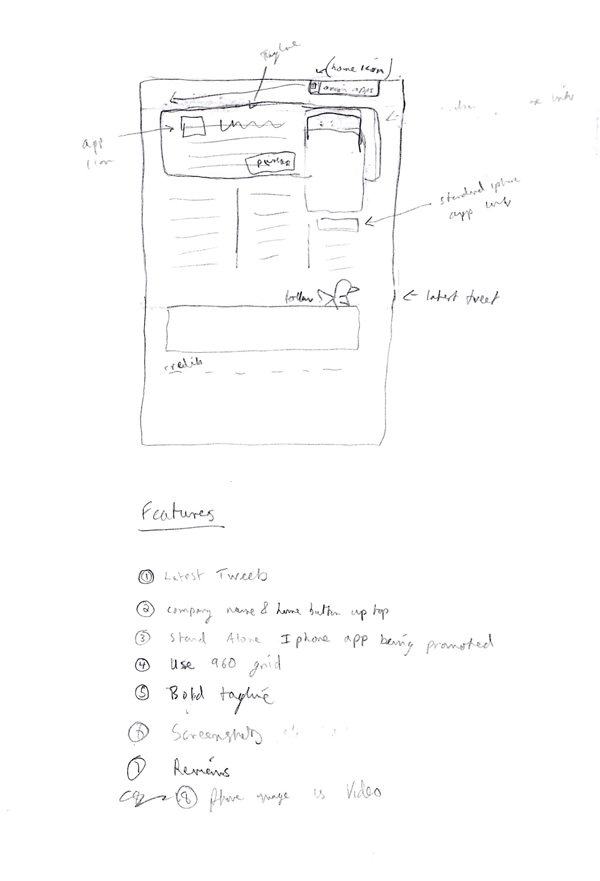 Tagline
(home icon)
app
icon
standard iphone
app
follow
← latest tweet
credits
Features
① Latest Tweets
② company name & home button up top
③ Stand Alone Iphone app being promoted
④ Use 960 grid
⑤ Bold tagline
⑥ Screenshots
⑦ Reviews
⑧ phone image is Video